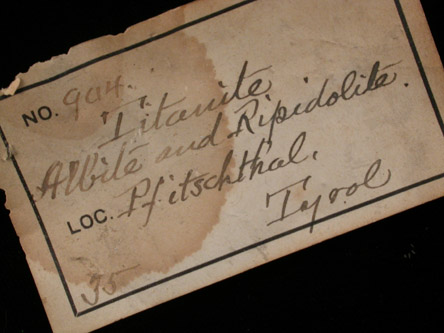 NO. 904.
Titanite
Albite and Ripidolite.
LOC. Pfitschthal.
Tyrol
35